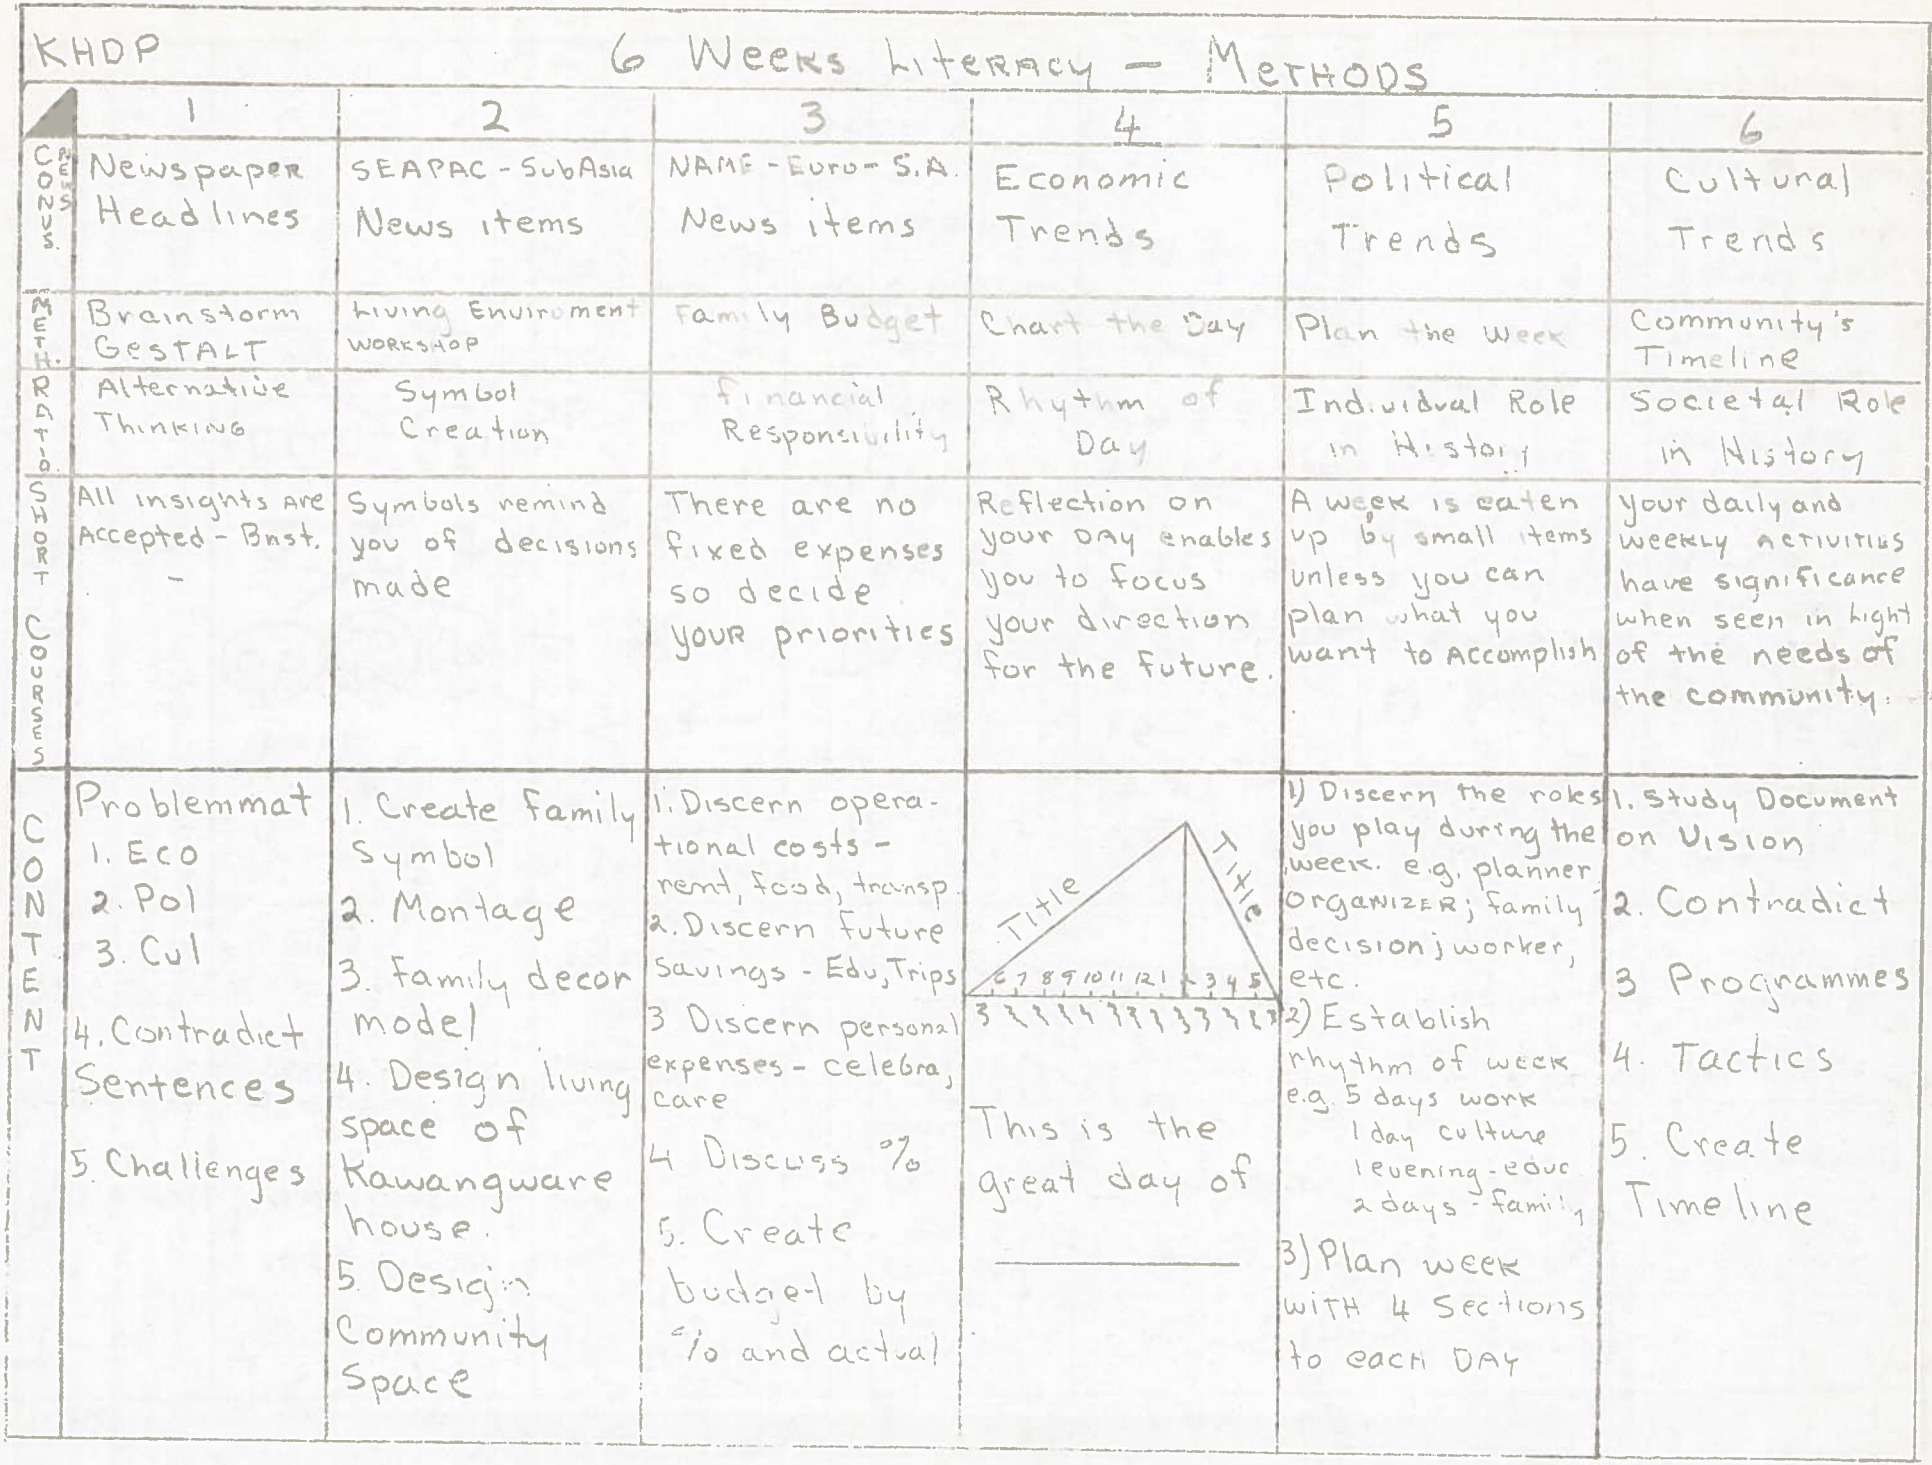 KHDP
6 Weeks Literacy - Methods
1
2
3
4
5
6
CONVS.
NEWS
Newspaper
Headlines
SEAPAC - SubAsia
News items
NAME - Euro - S.A.
News items
Economic
Trends
Political
Trends
Cultural
Trends
METH.
Brainstorm
GESTALT
Living Enviroment
WORKSHOP
Family Budget
Chart the Day
Plan the Week
Community's
Timeline
RATIO.
Alternative
Thinking
Symbol
Creation
Financial
Responsibility
Rhythm of
Day
Individual Role
in History
Societal Role
in History
SHORT COURSES
All insights Are
Accepted - Bnst.
Symbols remind
you of decisions
made
There are no
fixed expenses
so decide
your priorities
Reflection on
your DAY enables
you to focus
your direction
for the future.
A week is eaten
up by small items
unless you can
plan what you
want to Accomplish
your daily and
weekly activities
have significance
when seen in Light
of the needs of
the community.
CONTENT
Problemmat
1. Eco
2. Pol
3. Cul
4. Contradict
Sentences
5. Challenges
1. Create family
Symbol
2. Montage
3. family decor
model
4. Design living
space of
Kawangware
house.
5. Design
Community
Space
1. Discern opera-
tional costs -
rent, food, transp.
2. Discern future
savings - Edu, Trips
3 Discern personal
expenses - celebra,
care
4 Discuss %
5. Create
budget by
% and actual
Title
Title
6 7 8 9 10 11 12 1 2 3 4 5
This is the
great day of
1) Discern the roles
you play during the
week. e.g. planner,
ORGANIZER; family
decision; worker,
etc.
2) Establish
rhythm of week
e.g. 5 days work
1 day culture
1 evening - educ
2 days - family
3) Plan week
WITH 4 Sections
to each DAY
1. Study Document
on Vision
2. Contradict
3 Programmes
4. Tactics
5. Create
Timeline